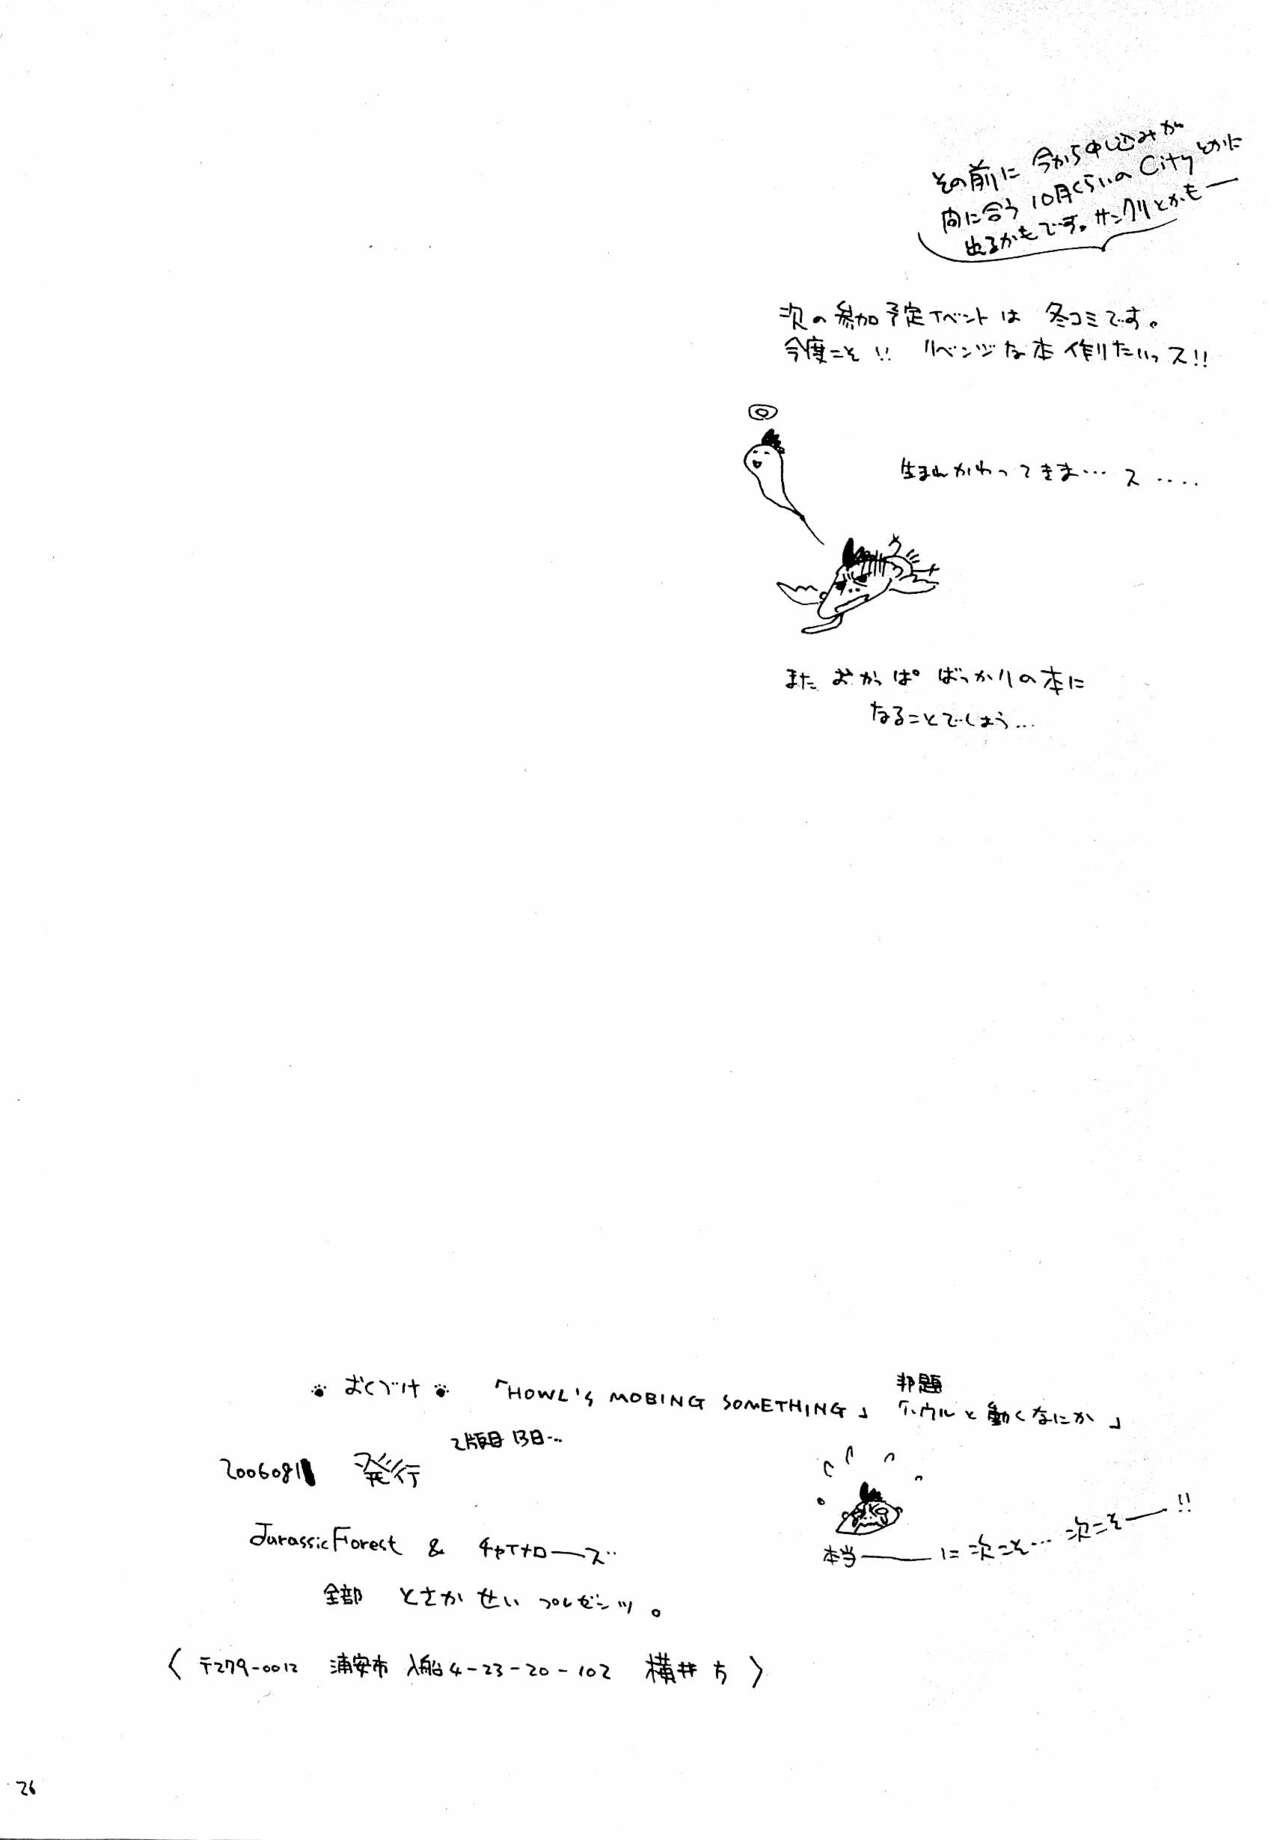 その前に 今から申し込みが
間に合う 10月くらいの Cityとかに
出るかもです。サンクリとかもー
次の参加予定イベントは 冬コミです。
今度こそ!! リベンジな本作りたいっス!!
生まれかわってきま…ス‥‥
また おかっぱ ばっかりの本に
なることでしょう…
おくづけ 「HOWL'S MOBING SOMETHING」 邦題「ハウルと動くなにか」
2版目 13日…
2006081 発行
JurassicForest & チャイナローズ
全部 とさか せい プレゼンツ。
本当――に次こそ… 次こそー!!
〈〒279-0012 浦安市 入船4-23-20-102 横井方〉
26